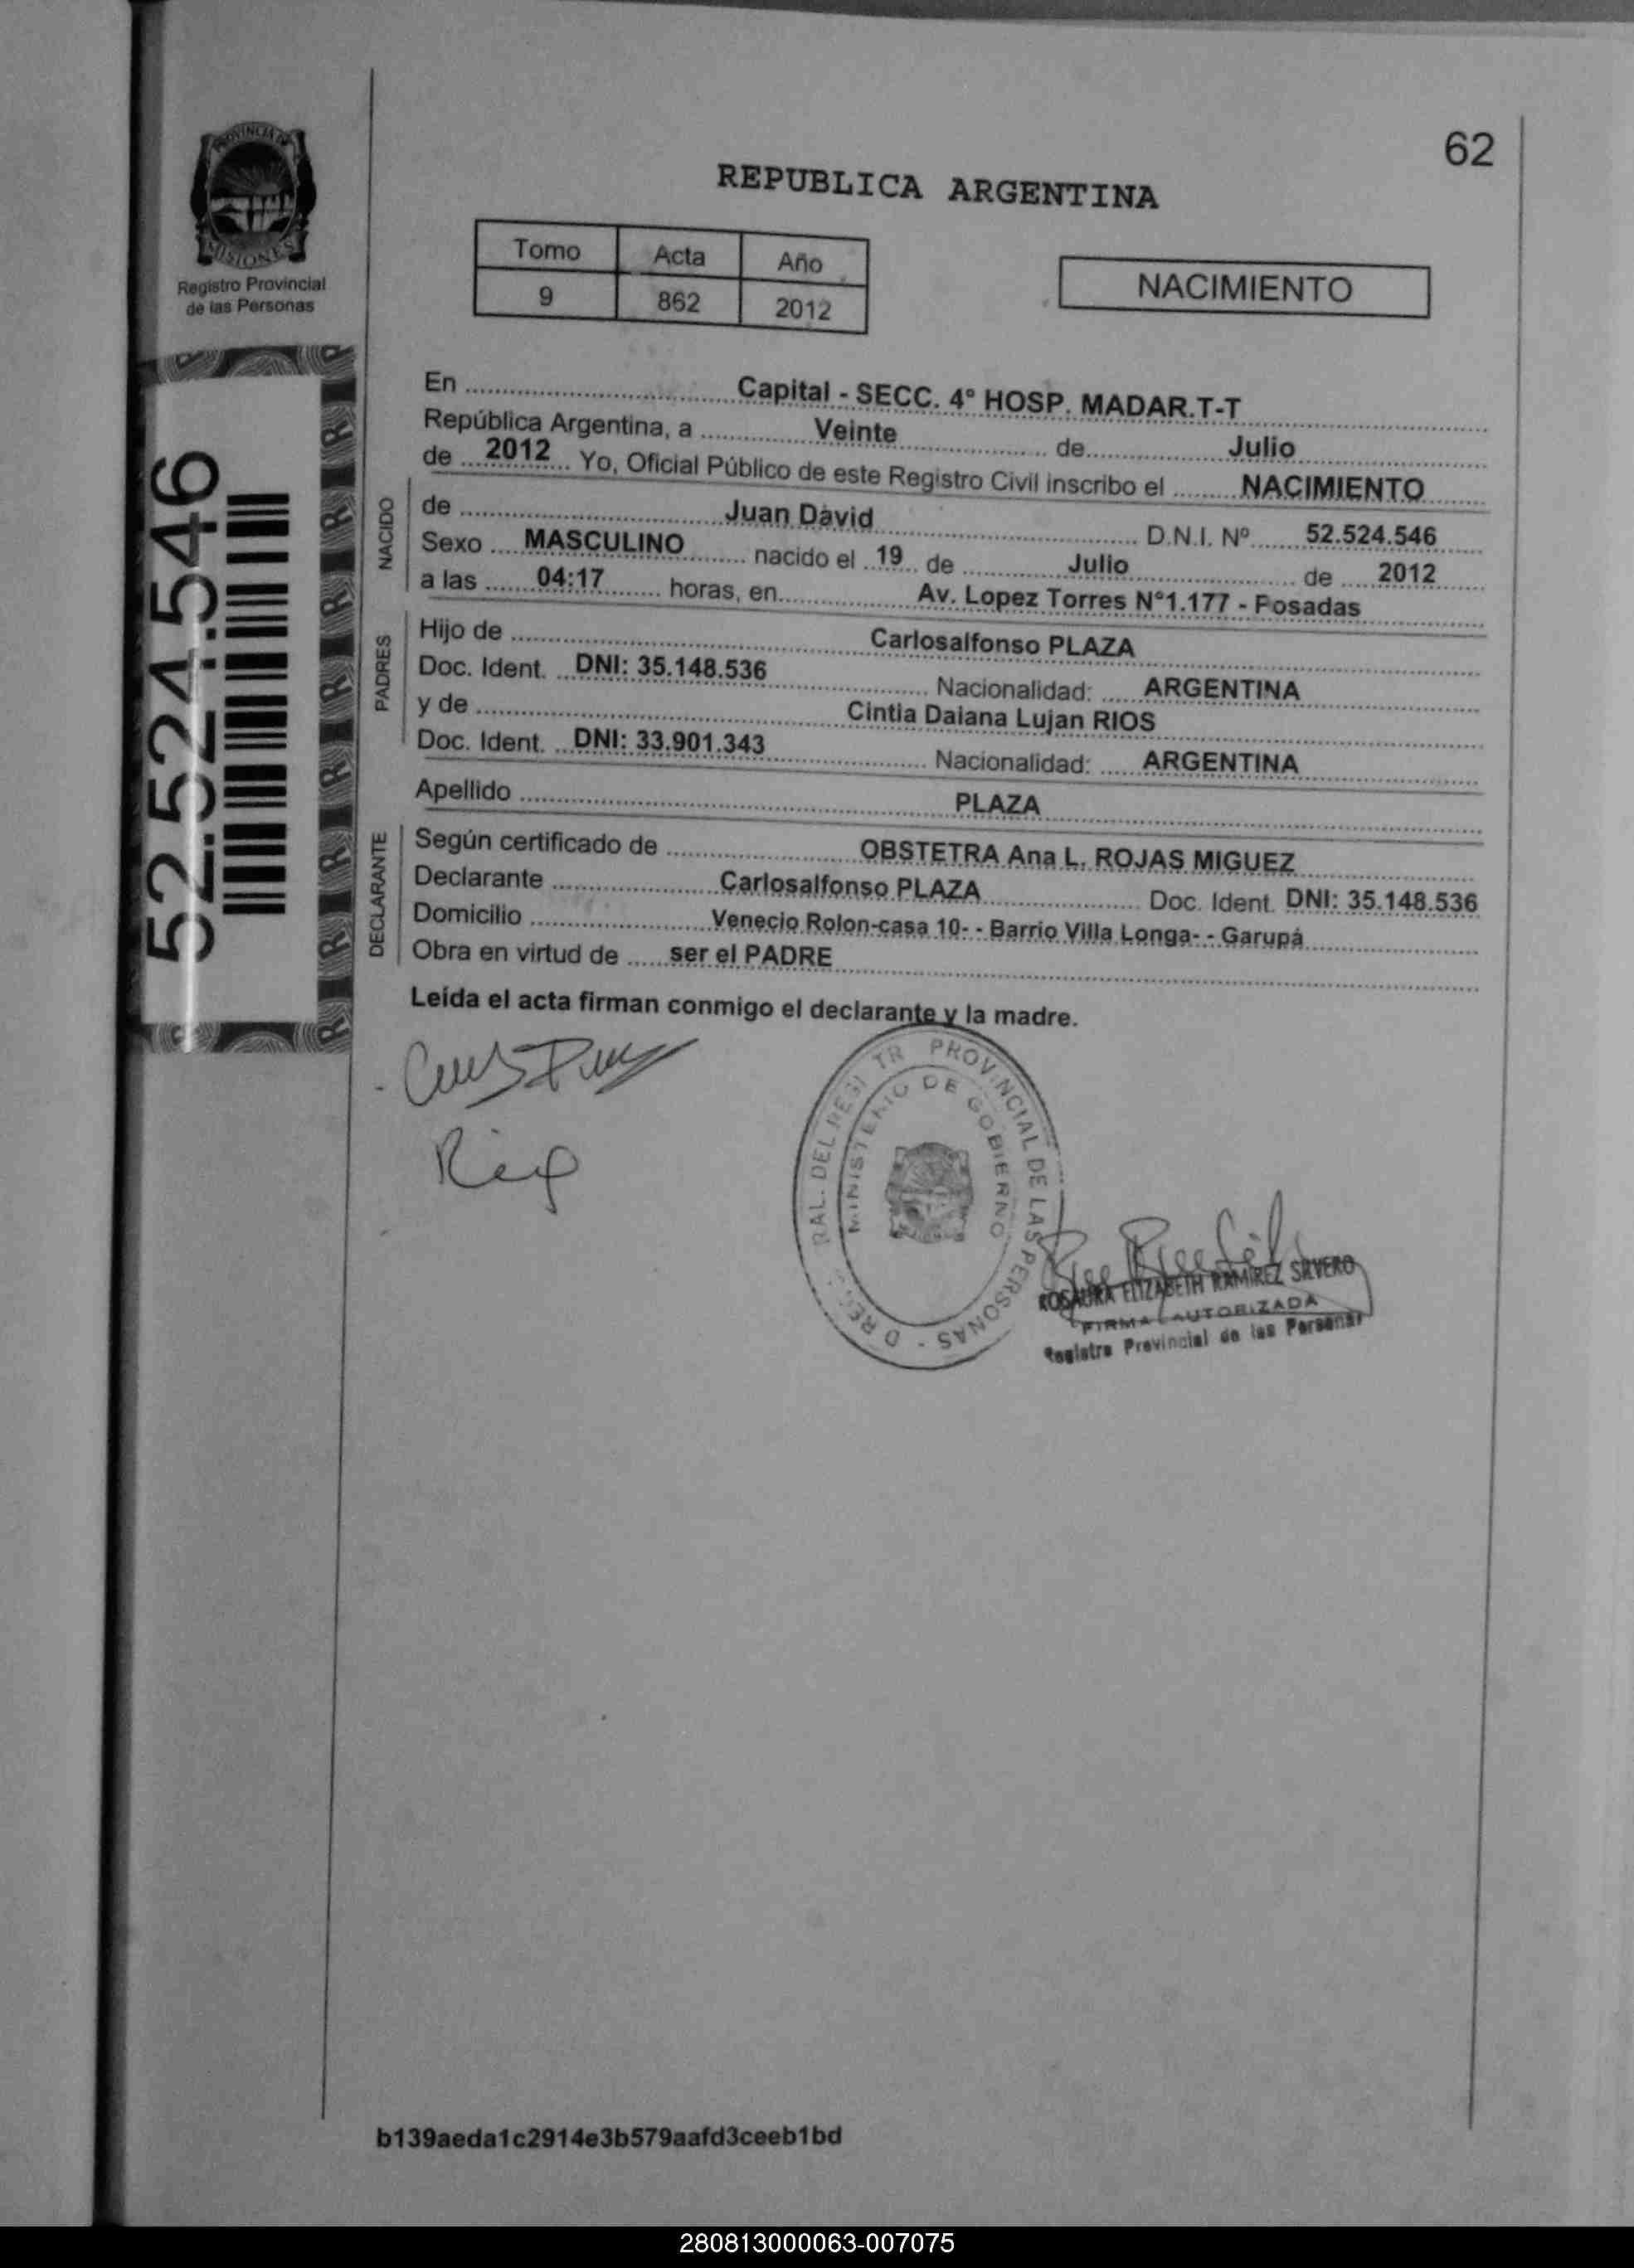 62
PROVINCIA DE
MISIONES
Registro Provincial
de las Personas
REPUBLICA ARGENTINA
Tomo Acta Año
9 862 2012
NACIMIENTO
52.524.546
En Capital - SECC. 4º HOSP. MADAR.T-T
República Argentina, a Veinte de Julio
de 2012 Yo, Oficial Público de este Registro Civil inscribo el NACIMIENTO
NACIDO
de Juan David D.N.I. Nº 52.524.546
Sexo MASCULINO nacido el 19 de Julio de 2012
a las 04:17 horas, en Av. Lopez Torres N°1.177 - Posadas
PADRES
Hijo de Carlosalfonso PLAZA
Doc. Ident. DNI: 35.148.536 Nacionalidad: ARGENTINA
y de Cintia Daiana Lujan RIOS
Doc. Ident. DNI: 33.901.343 Nacionalidad: ARGENTINA
Apellido PLAZA
DECLARANTE
Según certificado de OBSTETRA Ana L. ROJAS MIGUEZ
Declarante Carlosalfonso PLAZA Doc. Ident. DNI: 35.148.536
Domicilio Venecio Rolon-casa 10- - Barrio Villa Longa- - Garupá
Obra en virtud de ser el PADRE
Leída el acta firman conmigo el declarante y la madre.
PROVINCIAL DE LAS PERSONAS
MINISTERIO DE GOBIERNO
ROSAURA ELIZABETH RAMIREZ SILVERO
FIRMA AUTORIZADA
Registro Provincial de las Personas
b139aeda1c2914e3b579aafd3ceeb1bd
280813000063-007075